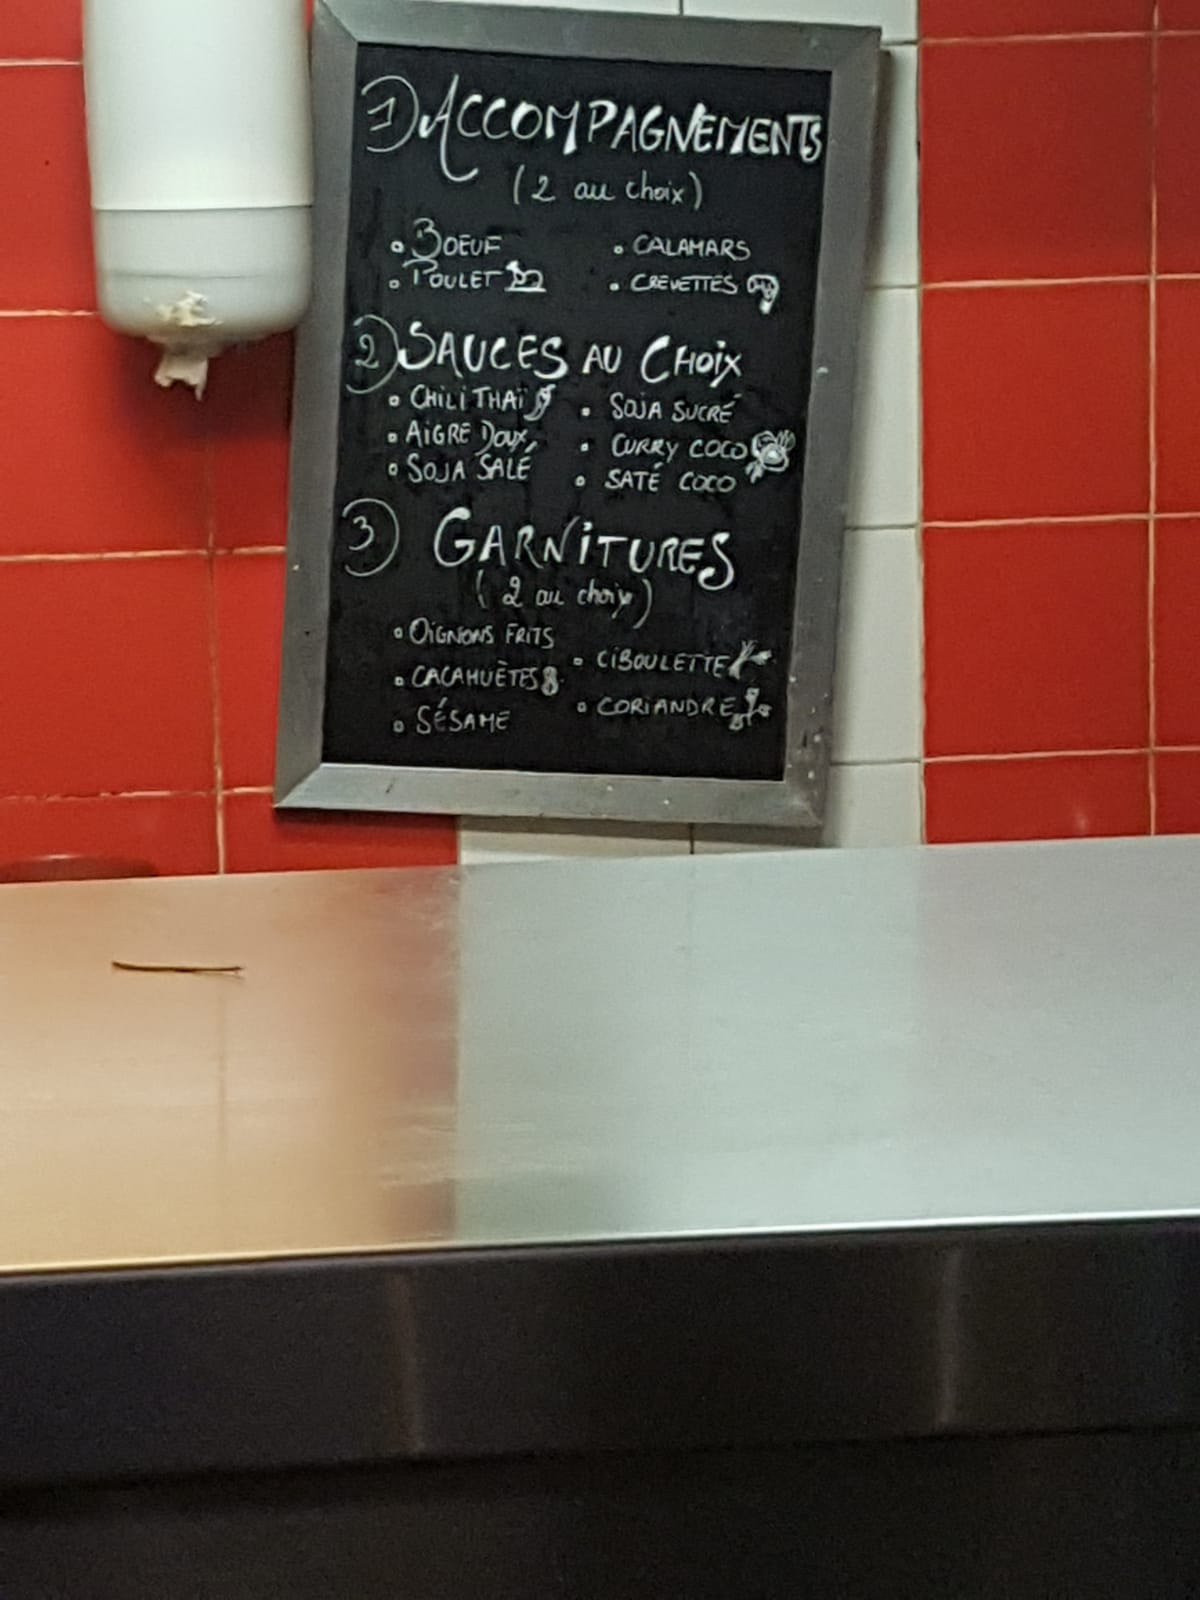 1) ACCOMPAGNEMENTS
(2 au choix)
BOEUF
POULET
CALAMARS
CREVETTES
2 SAUCES AU CHOIX
CHILI THAÏ
AIGRE Doux
SOJA SALÉ
SOJA SUCRÉ
CURRY COCO
SATÉ COCO
3 GARNITURES
(2 au choix)
OIGNONS FRITS
CACAHUÈTES
SÉSAME
CIBOULETTE
CORIANDRE